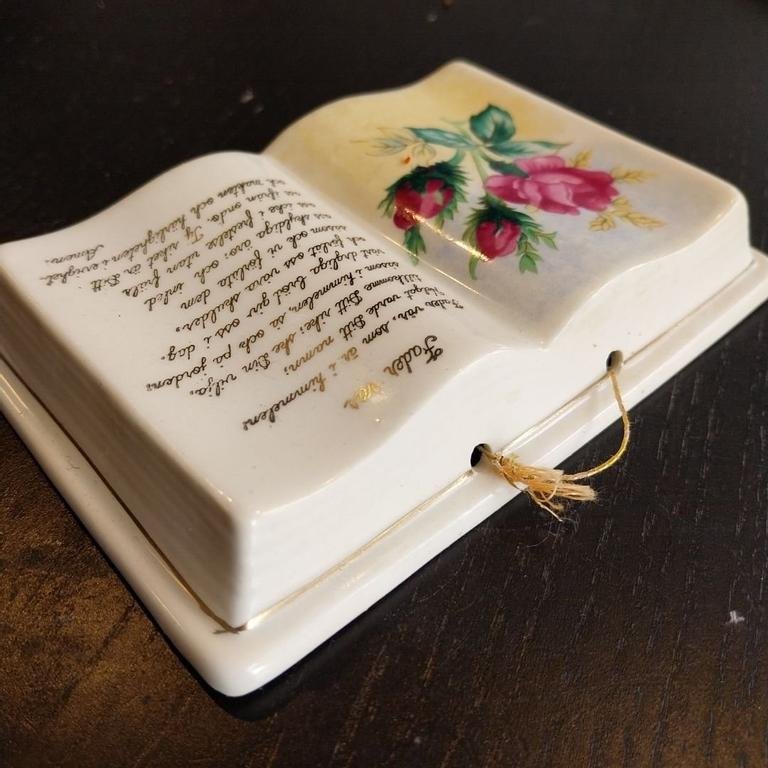 Fader vår
Fader vår, som är i himmelen!
Helgat varde Ditt namn;
tillkomme Ditt rike; ske Din vilja,
såsom i himmelen, så ock på jorden;
vårt dagliga bröd giv oss i dag.
och förlåt oss våra skulder,
såsom ock vi förlåta dem
oss skyldiga äro; och inled
oss icke i frestelse utan fräls
oss ifrån ondo. Ty riket är Ditt
och makten och härligheten i evighet
Amen.